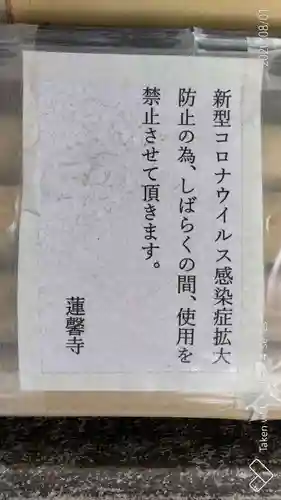 新型コロナウイルス感染症拡大
防止の為、しばらくの間、使用を
禁止させて頂きます。
蓮馨寺
2021/08/01